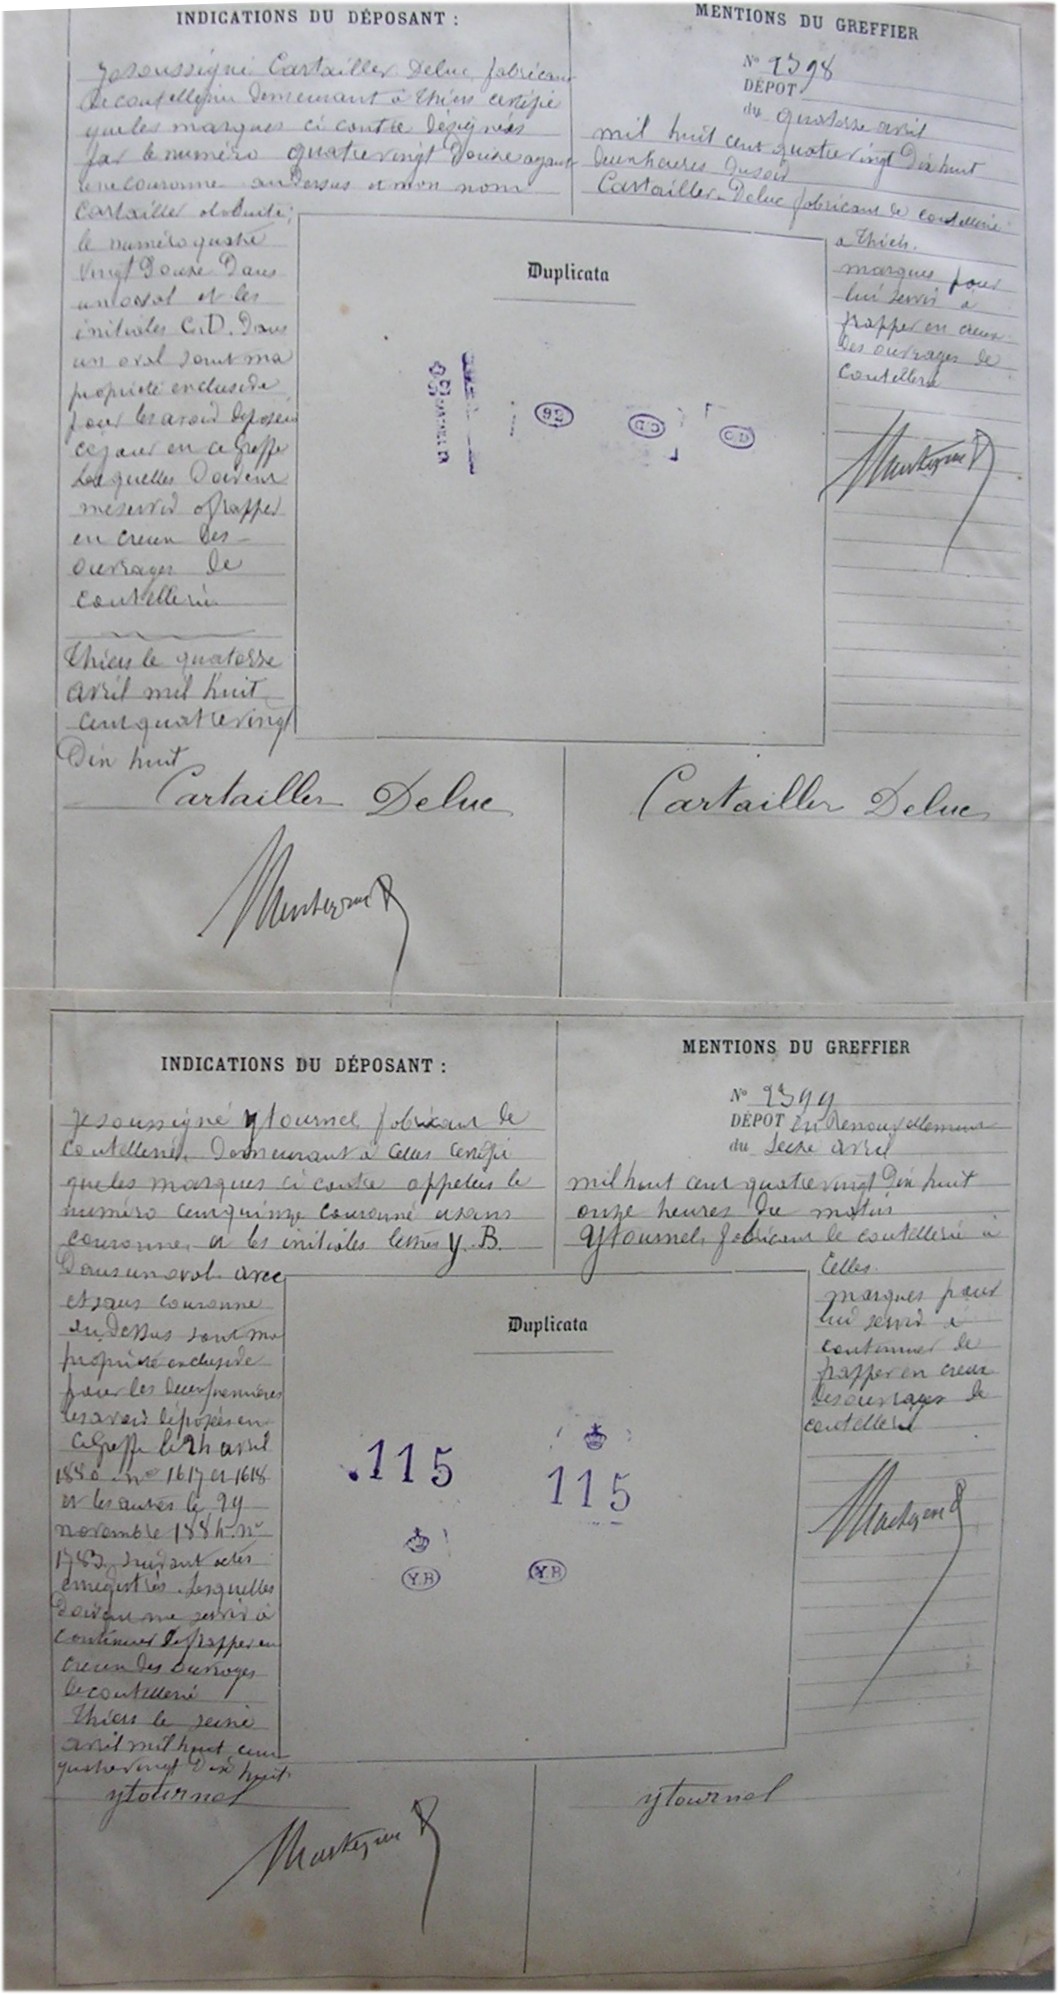 INDICATIONS DU DÉPOSANT :
Je soussigné Cartailler Deluc, fabricant
de coutellerie demeurant à Thiers certifie
que les marques ci contre désignées
par le numéro quatre vingt douze ayant
une couronne au dessus et mon nom
Cartailler
le numéro quatre
vingt douze dans
un oval et les
initiales C.D. dans
un oval sont ma
propriété exclusive
pour les avoir déposées
ce jour en ce greffe
Lesquelles doivent
me servir à frapper
en creux des
ouvrages de
coutellerie
Thiers le quatorze
avril mil huit
cent quatre vingt
Dix huit
Cartailler Deluc
MENTIONS DU GREFFIER
N° 2398
DÉPOT
du quatorze avril
mil huit cent quatre vingt Dix huit
deux heures du soir
Cartailler-Deluc fabricant de coutellerie
à Thiers.
marques pour
lui servir à
frapper en creux
des ouvrages de
coutellerie
Duplicata
92
C.D
C.D
Cartailler Deluc
INDICATIONS DU DÉPOSANT :
Je soussigné Ytournel fabricant de
coutellerie, demeurant à Celles certifie
que les marques ci contre appelées le
numéro cent quinze couronné et sans
couronne, et les initiales lettres Y.B.
Dans un oval avec
et sans couronne
au dessus sont ma
propriété exclusive
pour les deux premières
les avoir déposées en
ce Greffe le 24 avril
1880 n° 1617 et 1618
et les autres le 29
novembre 1884 n°
1783, suivant actes
enregistrés. Lesquelles
doivent me servir à
continuer de frapper en
creux des ouvrages
de coutellerie
Thiers le seize
avril mil huit cent
quatre vingt dix huit
ytournel
MENTIONS DU GREFFIER
N° 2399
DÉPOT en Renouvellement
du seize avril
mil huit cent quatre vingt Dix huit
onze heures du matin
Ytournel, fabricant de coutellerie à
Celles.
marques pour
lui servir à
continuer de
frapper en creux
des ouvrages de
coutellerie
Duplicata
115
115
Y.B
Y.B
ytournel